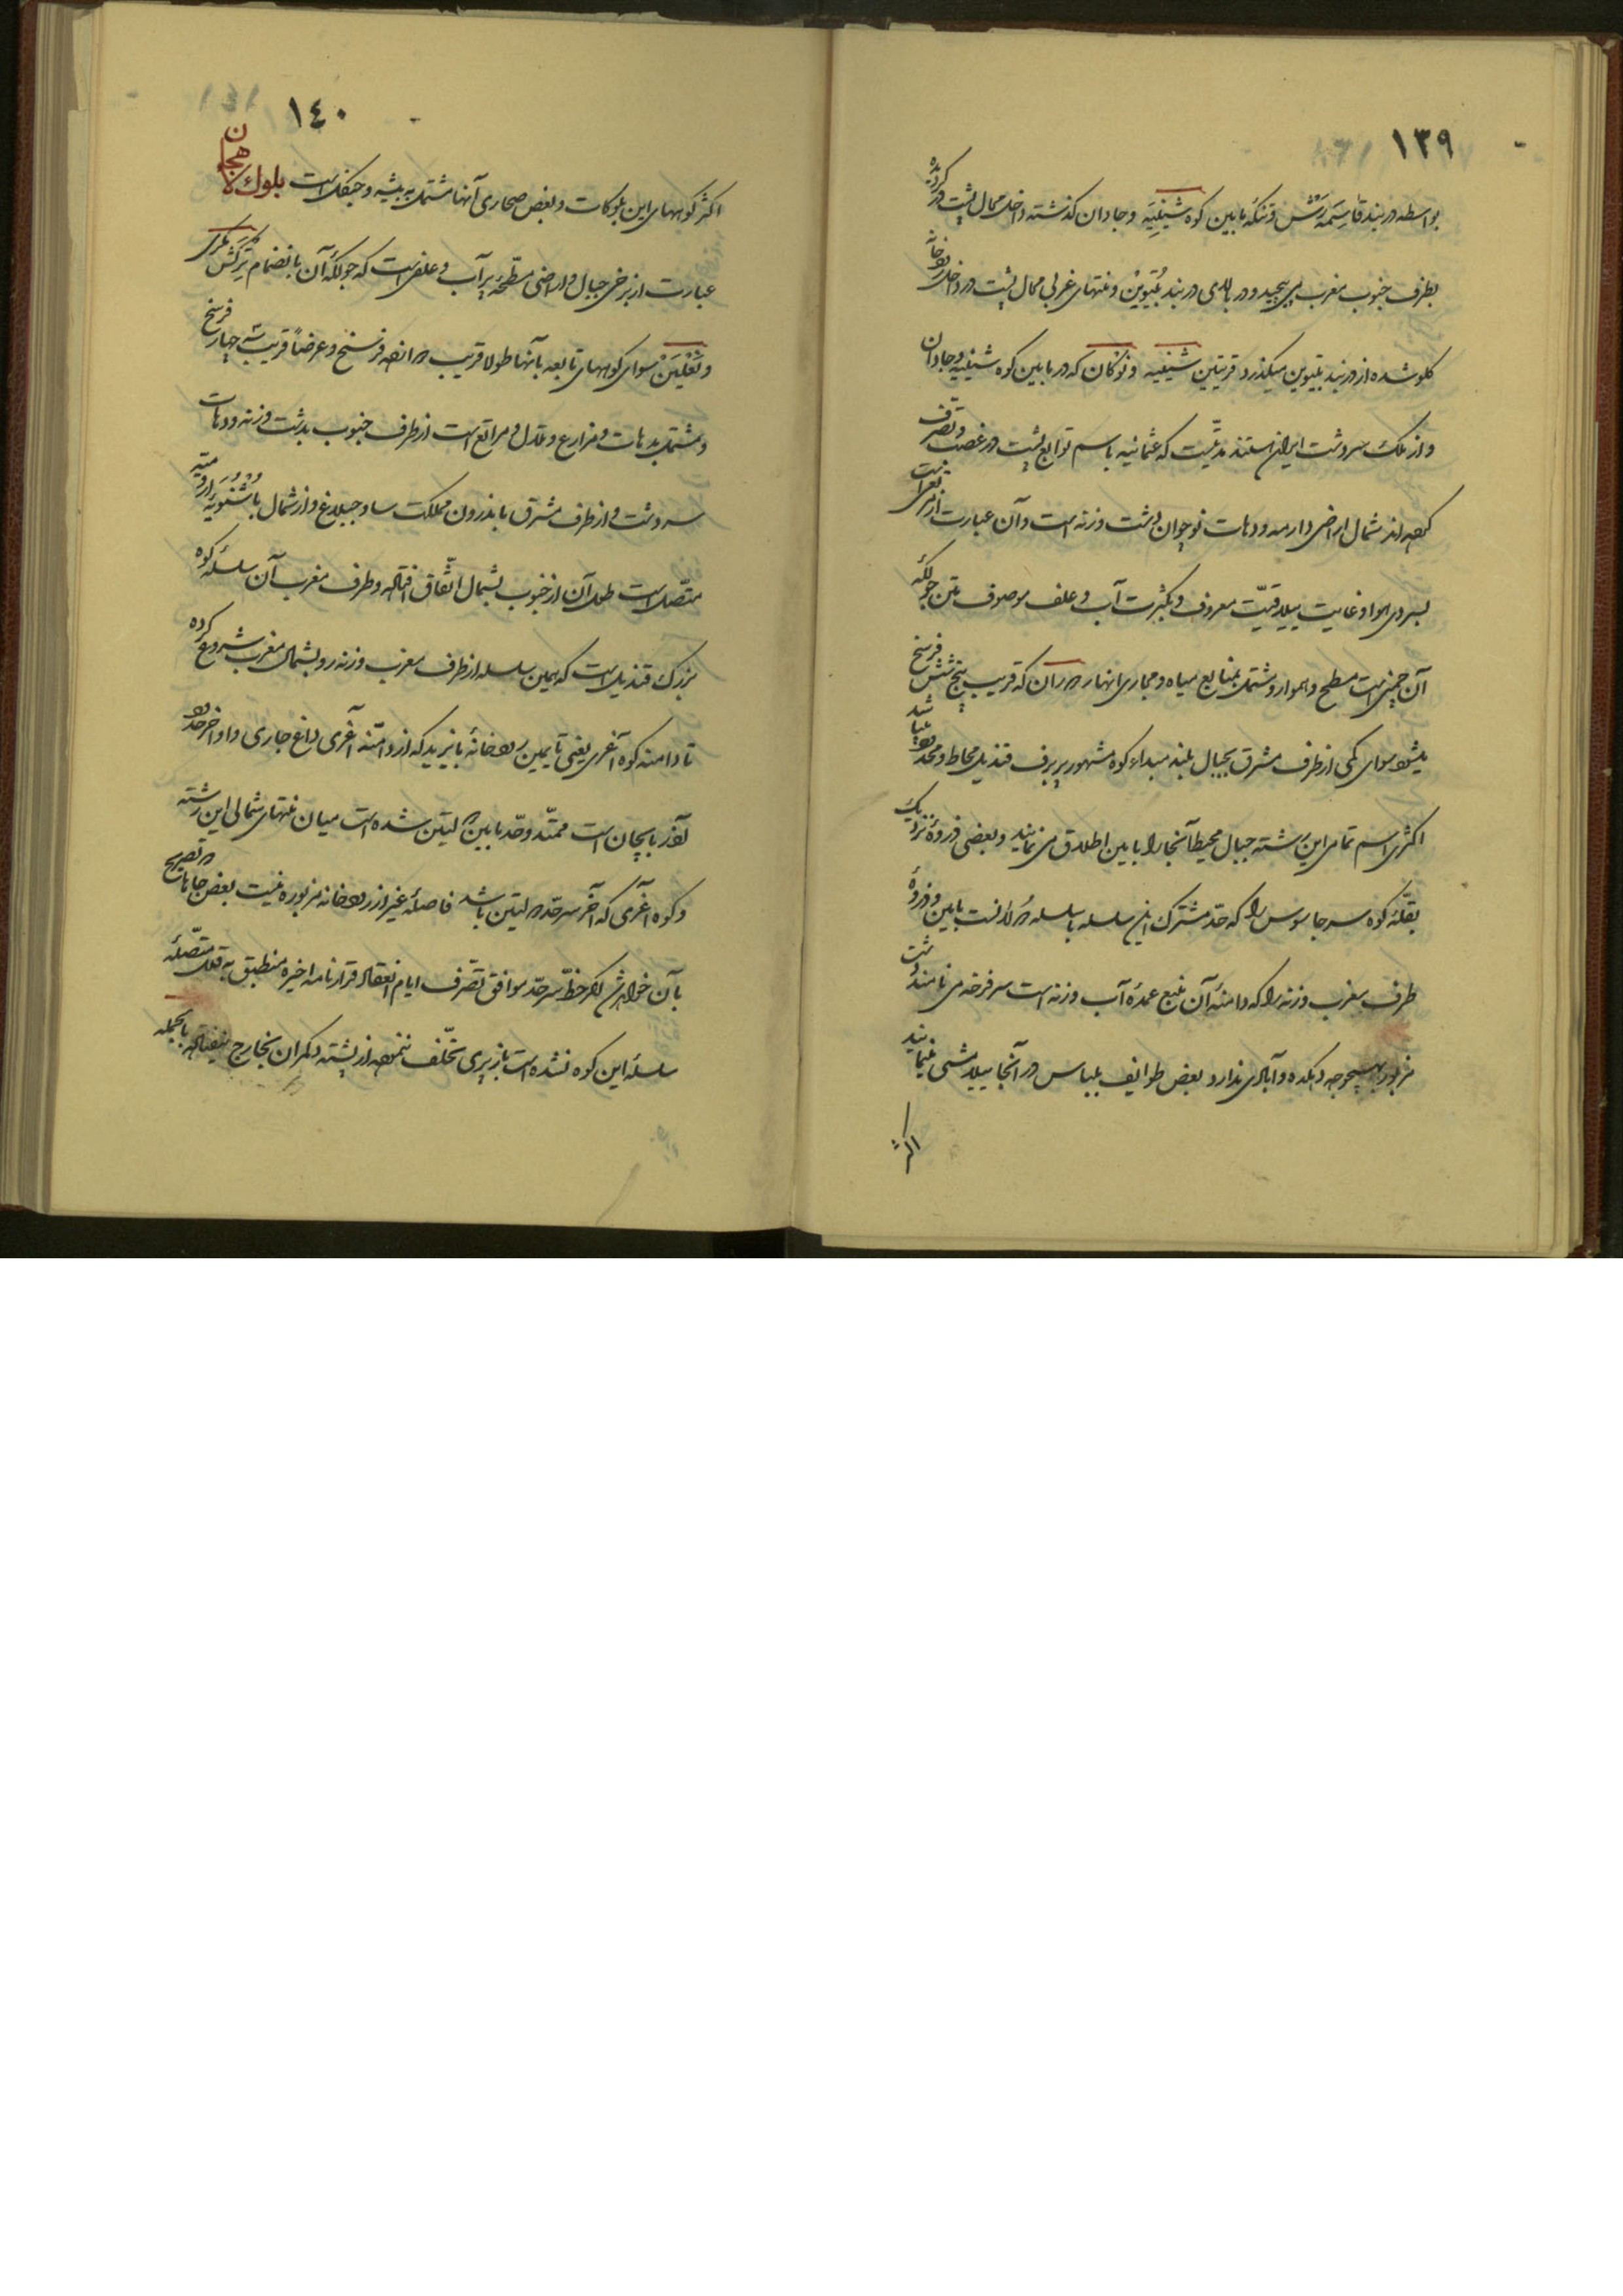 ١٣٩
بواسطه دربند قاسمه رش و تنکه مابین کوه شینیه و جاداران کذشته داخل محال پشت در کردیده
بطرف جنوب مغرب می پیچید و در بالای دربند بتیوین و منتهای غربی محال پشت در داخل رودخانه
کلو شده از دربند بتیوین میکذرد قریتین شینیه و نوکان که در مابین کوه شینیه و جاداران
و از ملک سردشت ایران استند مدتیست که عثمانیه باسم توابع پشت در غصب و تصرف
کرده اند شمال اراضی دارمه و دهات نوجوان دشت وزنه است و آن عبارت از
بسردی هوا و غایت ییلاقیت معروف و بکثرت آب و علف موصوف متن جولکه
آن چمنی است مسطح و هموار و مشتمل بمنابع میاه و مجاری انهار که قریب پنج شش فرسخ
میشود سوای کمی از طرف مشرق بجبال بلند مبداء کوه مشهور پر برف قندیل محاط و محدود میباشد
اکثری اسم تمامی این رشته جبال محیط آنجا را بابین اطلاق می نمایند و بعضی ذروهٔ نزدیک
بقلهٔ کوه سر جاسوس را که حد مشترک این سلسله با سلسله است بابین و ذروهٔ
طرف مغرب وزنه را که دامنهٔ آن منبع عمدهٔ آب وزنه است سرفرخه می نامند دشت
مزبور بهیچوجه دهکده و آبادی ندارد بعض طوایف بلباس در آنجا ییلامشی مینمایند
اکثر
١٤٠
اکثر کوههای این بلوکات و بعض صحاری آنها مشتمل به بیشه و جنکل است بلوك لاهجان
عبارت از برخی جبال و اراضی مسطحهٔ پر آب و علفی است که جولکهٔ آن بانضمام ترکش
و نعلین سوای کوههای تابعه بآنها طولا قریب فرسخ و عرضاً قریب سه چهار فرسخ
و مشتمل بدهات و مزارع و تلال و مراتع است از طرف جنوب بدشت وزنه و دهات
سردشت و از طرف مشرق باندرون مملکت ساوجبلاغ و از شمال باشنویه ارومیه
متصل است طول آن از جنوب بشمال اتفاق افتاده و طرف مغرب آن سلسلهٔ کوه
بزرک قندیل است که همین سلسله از طرف مغرب وزنه رو بشمال مغرب شروع کرده
تا دامنه کوه آغری یعنی تا یمین رودخانهٔ بایزید که از دامنه آغری داغ جاری و اواخر حدود
آذربایجان است ممتد و حد مابین دولتین شده است میان منتهای شمالی این رشته
و کوه آغری که آخر سرحد دولتین باشد فاصلهٔ غیر از رودخانه مزبوره نیست بعض جاها تصریح
بآن خواهد شد اکر خط سرحد موافق تصرف ایام انعقاد قرارنامه اخیره منطبق به قلل متصلهٔ
سلسلهٔ این کوه نشده است باز پری تخلف ننموده از پشته دکران بخارج نیفتاده بالجمله